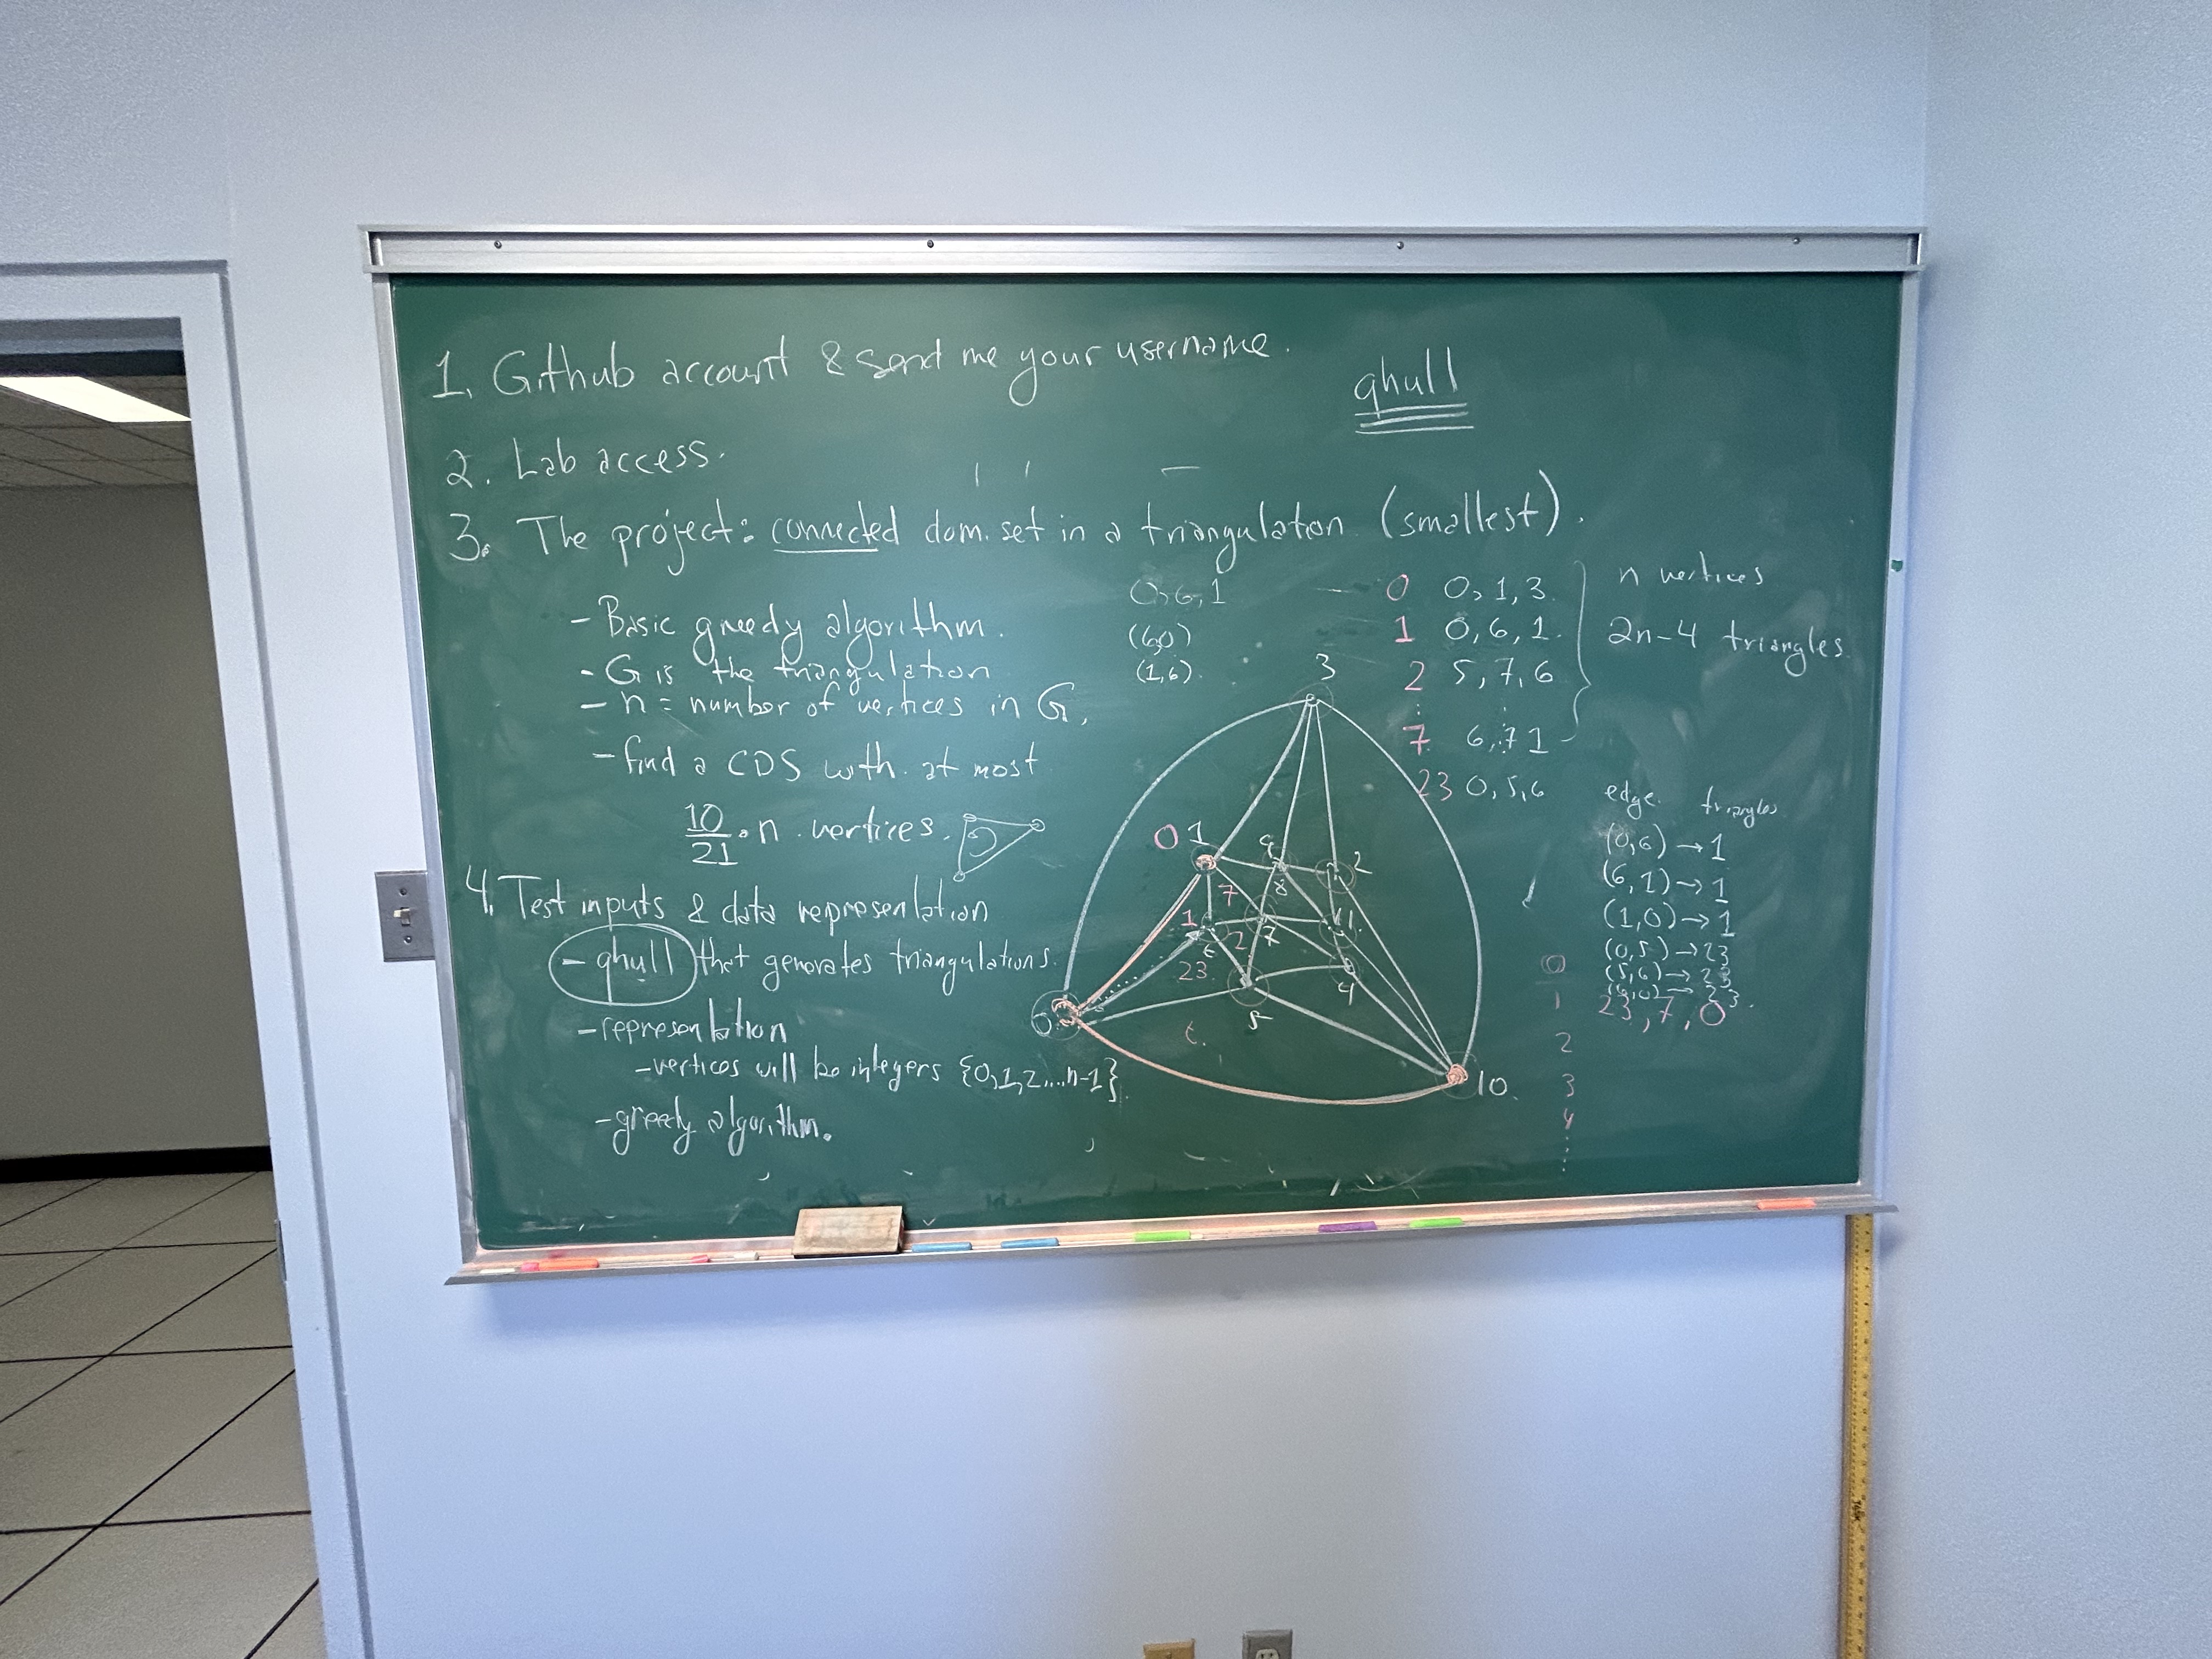 1. Github account & send me your username.
qhull
2. Lab access.
3. The project: connected dom. set in a triangulation (smallest).
- Basic greedy algorithm.
- G is the triangulation
- n = number of vertices in G,
- find a CDS with at most
10/21 · n vertices.
4. Test inputs & data representation
- qhull that generates triangulations.
- representation
- vertices will be integers {0,1,2,...n-1}.
- greedy algorithm.
0,6,1
(6,0)
(1,6).
0 0,1,3.
1 0,6,1.
2 5,7,6
⋮
7 6,7,1
23 0,5,6
n vertices
2n-4 triangles.
edge. triangles
(0,6) → 1
(6,1) → 1
(1,0) → 1
(0,5) → 23
(5,6) → 23
(6,0) → 23.
23, 7, 0
0
1
2
3
4
⋮
3
0 1
2
7
8
1
2
7
23
0
5
4
10.